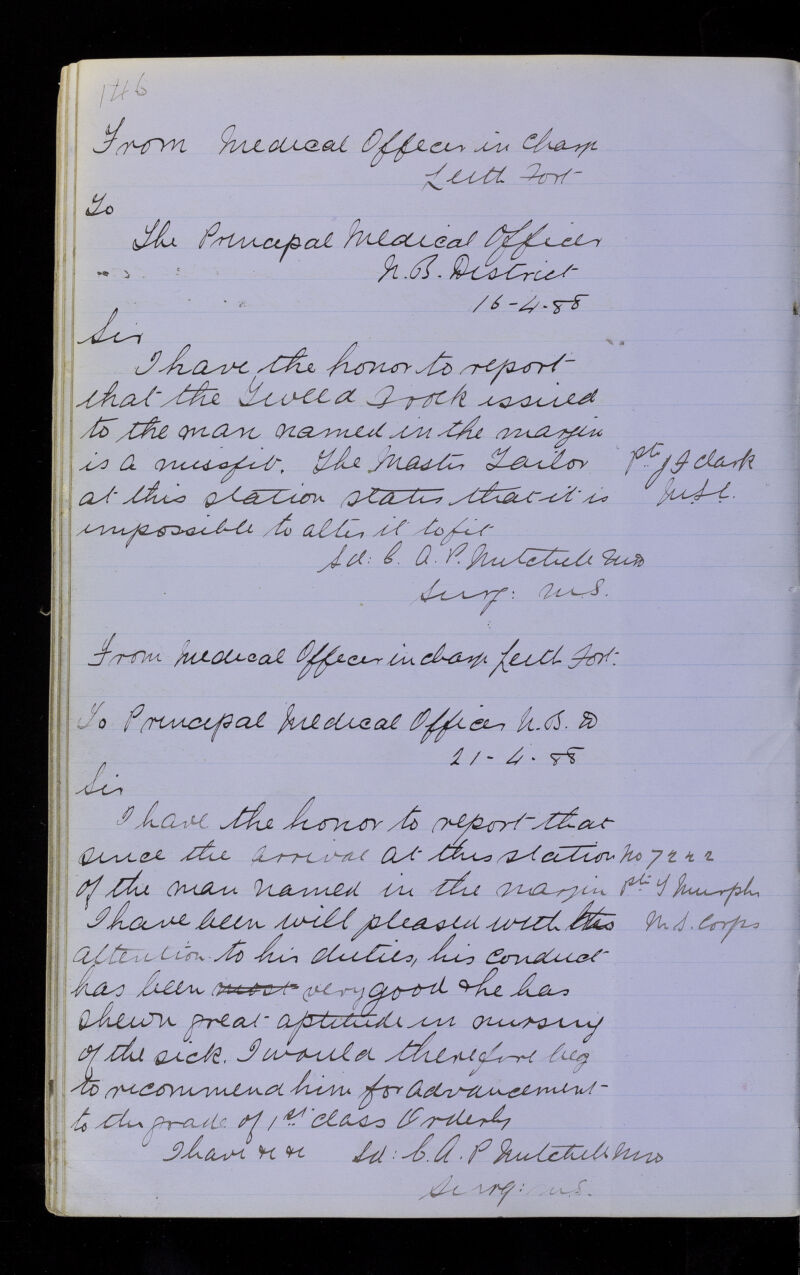 146
From Medical Officer in Charge
Leith Fort
To
The Principal Medical Officer
N.B. District
16-4-88
Sir
I have the honor to report
that the Tweed Frock issued
to the man named in the margin
is a missfit. The Master Tailor
Pte J F Clark
at this station states that it is
M.S.C.
impossible to alter it to fit
Sd: C. A. P. Mitchell MD
Surg: M.S.
From Medical Officer in charge Leith Fort.
To Principal Medical Officer N.B. D
21-4-88
Sir
I have the honor to report that
since the arrival at this station
No 7222
of the man named in the margin
Pte T Murphy
I have been well pleased with his
M.S. Corps
attention to his duties, his conduct
has been most very good & he has
shewn great aptitude in nursing
of the sick. I would therefore beg
to recommend him for advancement
to the grade of 1st class Orderly
I have &c &c Sd: C. A. P Mitchell MD
Surg: M.S.